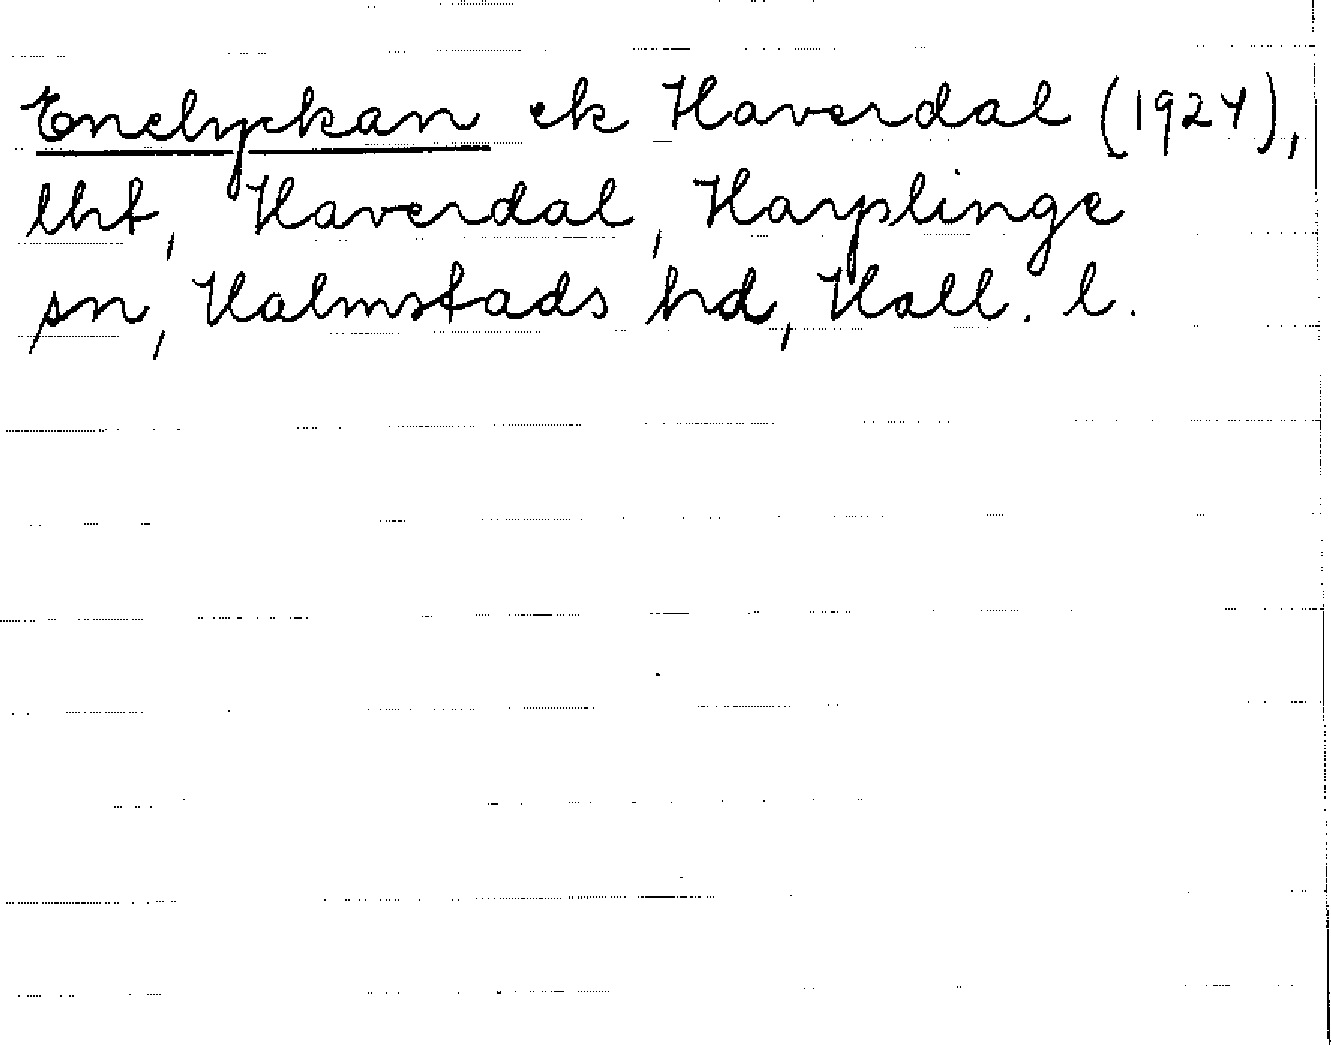 Enelyckan ek Haverdal (1924),
lht, Haverdal, Harplinge
sn, Halmstads hd, Hall. l.